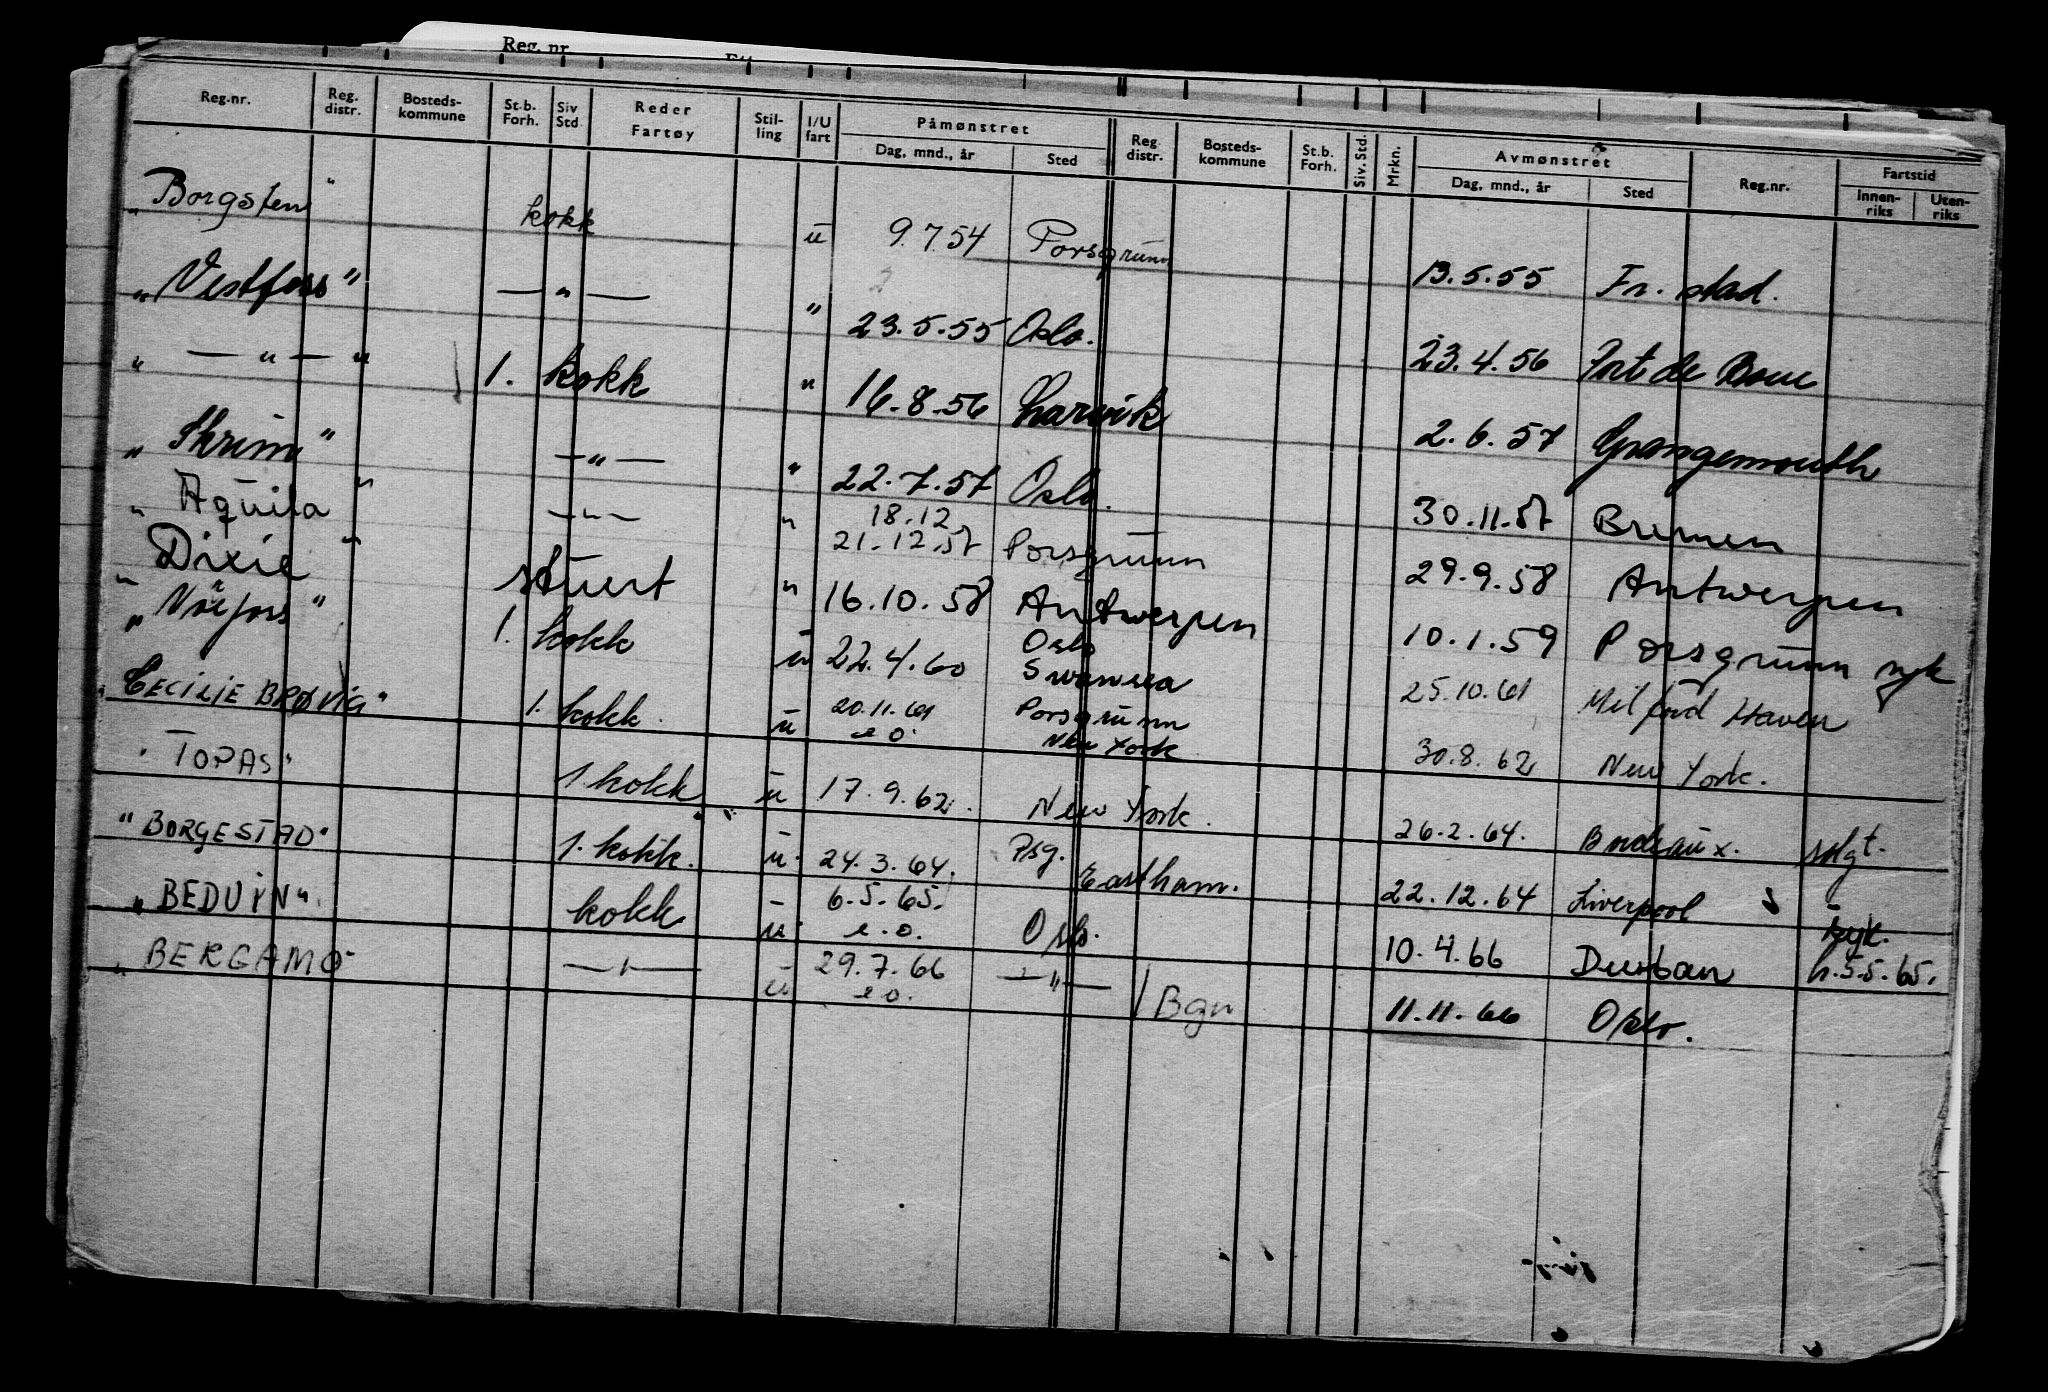 Reg. nr.
Reg.nr. Reg. distr. Bosteds-kommune St.b. Forh. Siv Std Reder Fartøy Stil-ling I/U fart Påmønstret Dag, mnd., år Sted Reg distr. Bosteds-kommune St.b. Forh. Siv. Std. Mrkn. Avmønstret Dag, mnd., år Sted Reg.nr. Fartstid Innen-riks Uten-riks
"Borgsten" kokk u 9.7.54 Porsgrunn 13.5.55 Fr. stad.
"Vestfoss" — " — " 23.5.55 Oslo. 23.4.56 Port de Bouc
" — " — " 1. kokk " 16.8.56 Larvik 2.6.57 Grangemouth
"Skrim" — " — " 22.7.57 Oslo. 30.11.57 Bremen
"Aquila" — " — " 18.12 21.12.57 Porsgrunn 29.9.58 Antwerpen
"Dixie" stuert " 16.10.58 Antwerpen 10.1.59 Porsgrunn syk
1. kokk u 22.4.60 Oslo Swansea 25.10.61 Milford Haven
"CECILIE BRØVIG" 1. kokk. u 20.11.61 e.o. Porsgrunn New York 30.8.62 New York.
"TOPAS" 1 kokk u 17.9.62. New York. 26.2.64. Bordeaux. solgt.
"BORGESTAD" 1. kokk. u. 24.3.64. Psg. Eastham. 22.12.64 Liverpool syk.
"BEDUIN" kokk u. 6.5.65. e.o. Oslo. 10.4.66 Durban h.5.5.65.
"BERGAMO" — " — u 29.7.66 e.o. — " — Bgn 11.11.66 Oslo.